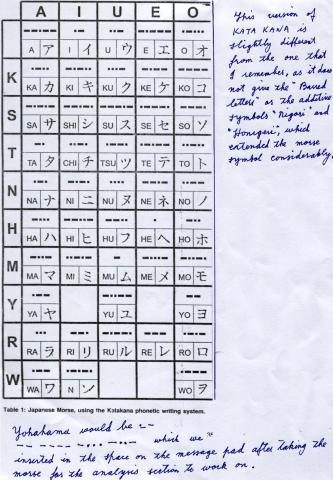 A I U E O
A ア I イ U ウ E エ O オ
K
KA カ KI キ KU ク KE ケ KO コ
S
SA サ SHI シ SU ス SE セ SO ソ
T
TA タ CHI チ TSU ツ TE テ TO ト
N
NA ナ NI ニ NU ヌ NE ネ NO ノ
H
HA ハ HI ヒ HU フ HE ヘ HO ホ
M
MA マ MI ミ MU ム ME メ MO モ
Y
YA ヤ YU ユ YO ヨ
R
RA ラ RI リ RU ル RE レ RO ロ
W
WA ワ N ソ WO ヲ
Table 1: Japanese Morse, using the Katakana phonetic writing system.
This version of
KATA KANA is
slightly different
from the one that
I remember, as it does
not give the "Barred
letters" or the additive
symbols "Nigori" and
"Honigori", which
extended the morse
symbol considerably.
Yokahama would be :-
which we
inserted in the space on the message pad after taking the
morse for the analysis section to work on.